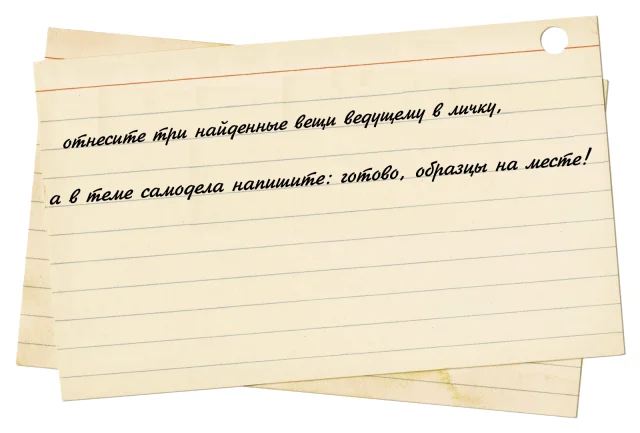 отнесите три найденные вещи ведущему в личку,
а в теме самодела напишите: готово, образцы на месте!